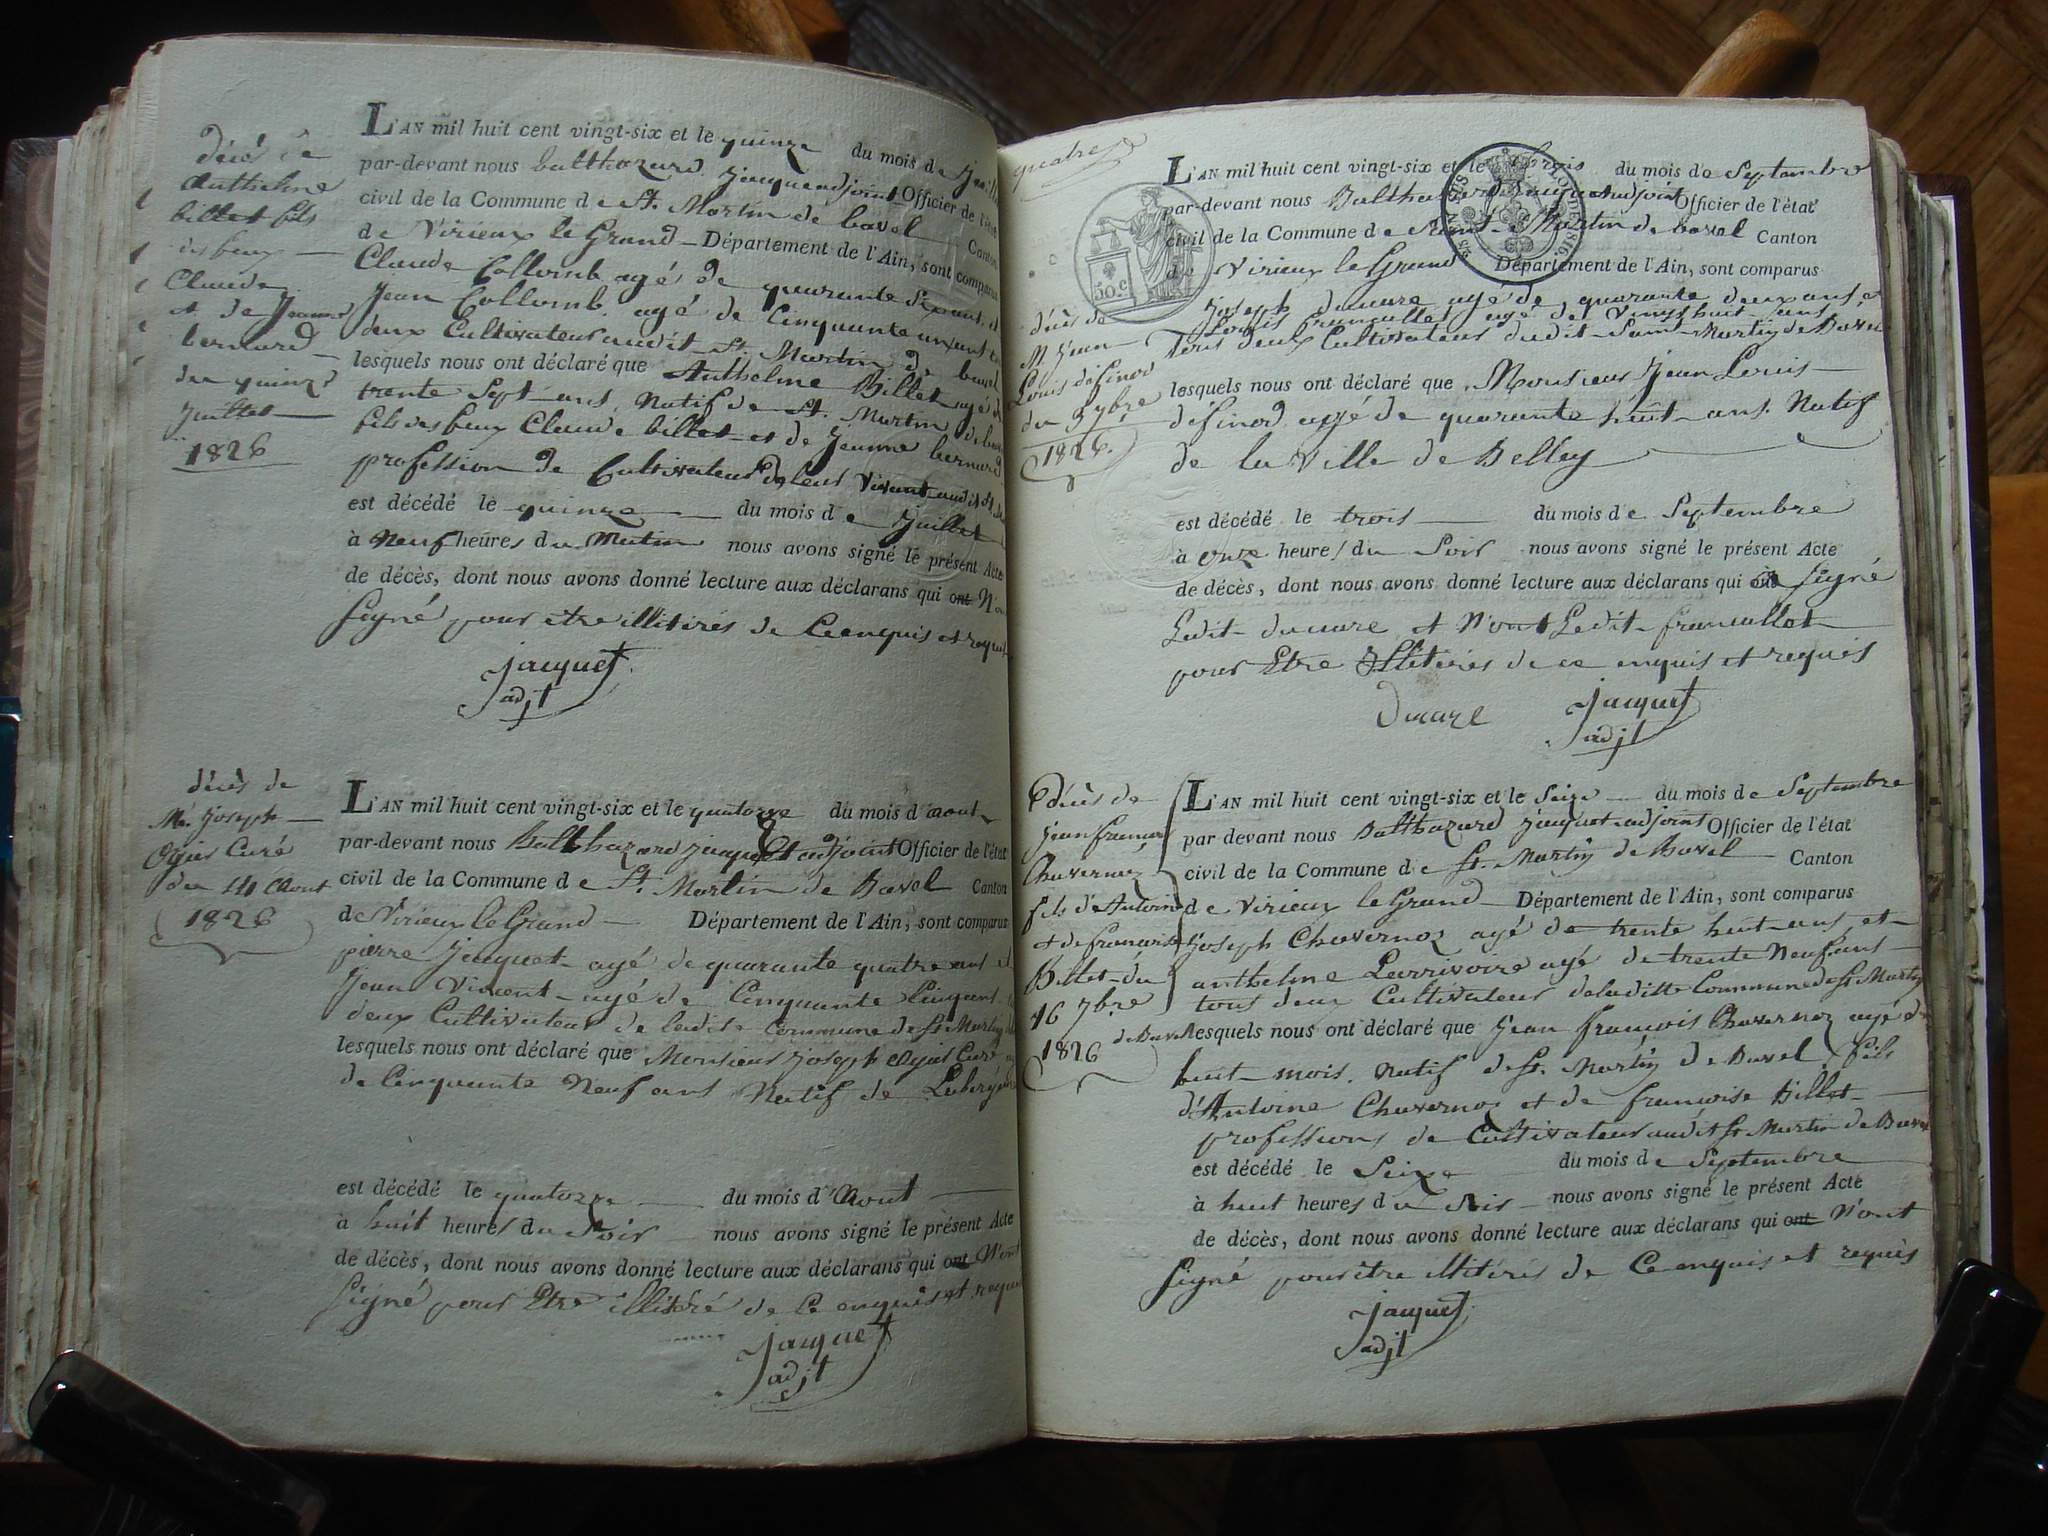 décès de
Anthelme
billet fils
des feux
Claude
et de Jeanne
bernard
du quinze
Juillet
1826
L'AN mil huit cent vingt-six et le quinze du mois de Juillet
par-devant nous balthazard Jacquet adjoint Officier de l'état
civil de la Commune de St. Martin de bavel Canton
de Virieux le Grand Département de l'Ain, sont comparus
Claude Collomb agé de quarante Six ans et
Jean Collomb agé de Cinquante un ans
deux Cultivateur audit St. Martin de bavel
lesquels nous ont déclaré que Anthelme Billet agé de
trente Sept ans Natif de St. Martin de bavel
fils des feux Claude billet et de Jeanne bernard
profession de Cultivateur de leur Vivant audit St.
est décédé le quinze du mois de Juillet
à Neuf heures du Matin nous avons signé le présent Acte
de décès, dont nous avons donné lecture aux déclarans qui ont N'ont
Signé pour etre illitérés de Ce enquis et requis
jacquet
adjt
décès de
Mr. Joseph
Ogier Curé
du 14 Aout
1826
L'AN mil huit cent vingt-six et le quatorze du mois d'aout
par-devant nous Balthazard jacquet adjoint Officier de l'état
civil de la Commune de St. Martin de Bavel Canton
de Virieux le Grand Département de l'Ain, sont comparus
pierre Jacquet agé de quarante quatre ans et
Jean Vincent agé de Cinquante Cinq ans
deux Cultivateur de ladite Commune de St Martin
lesquels nous ont déclaré que Monsieur Joseph Ogier Curé
de Cinquante Neuf ans Natif de
est décédé le quatorze du mois d'Aout
à huit heures du Soir nous avons signé le présent Acte
de décès, dont nous avons donné lecture aux déclarans qui ont N'ont
Signé pour Etre illitéré de Ce enquis et requis
jacquet
adjt
quatre
50.c
TIMBRE
LOI DE 1816.
L'AN mil huit cent vingt-six et le trois du mois de Septembre
par-devant nous Balthazard Jacquet Audjoint Officier de l'état
civil de la Commune de Saint Martin de bavel Canton
de Virieux le Grand Département de l'Ain, sont comparus
Joseph ducare agé de quarante deux ans et
Louis francallet agé de Vingt huit ans
Tous deux Cultivateur dudit Saint Martin de Bavel
lesquels nous ont déclaré que Monsieur Jean Louis
définod agé de quarante huit ans. Natif
de la Ville de Belley
décès de
M. Jean
Louis définod
du 3 7bre
1826.
est décédé le trois du mois de Septembre
à onze heures du Soir nous avons signé le présent Acte
de décès, dont nous avons donné lecture aux déclarans qui ont Signé
Ledit ducare et N'ont Ledit francallet
pour Etre Illiterés de ce enquis et requis
Ducare
jacquet
adjt
décès de
jean francois
Chavernoz
fils d'Antoine
et de francoise
Billet du
16 7bre
1826
L'AN mil huit cent vingt-six et le Seize du mois de Septembre
par devant nous Balthazard jacquet adjoint Officier de l'état
civil de la Commune de St. Martin de Bavel Canton
de Virieux le Grand Département de l'Ain, sont comparus
Joseph Chavernoz agé de trente huit ans et
anthelme Lavrivoire agé de trente Neuf ans
tous deux Cultivateur de laditte Commune de St Martin
de Bavel lesquels nous ont déclaré que Jean francois Chavernoz agé de
huit mois. Natif de St. Martin de Bavel, fils
d'Antoine Chavernoz et de francoise Billet
professions de Cultivateur audit St Martin de Bavel
est décédé le Seize du mois de Septembre
à huit heures du Soir nous avons signé le présent Acte
de décès, dont nous avons donné lecture aux déclarans qui ont N'ont
Signé pour etre illitérés de Ce enquis et requis
jacquet
adjt